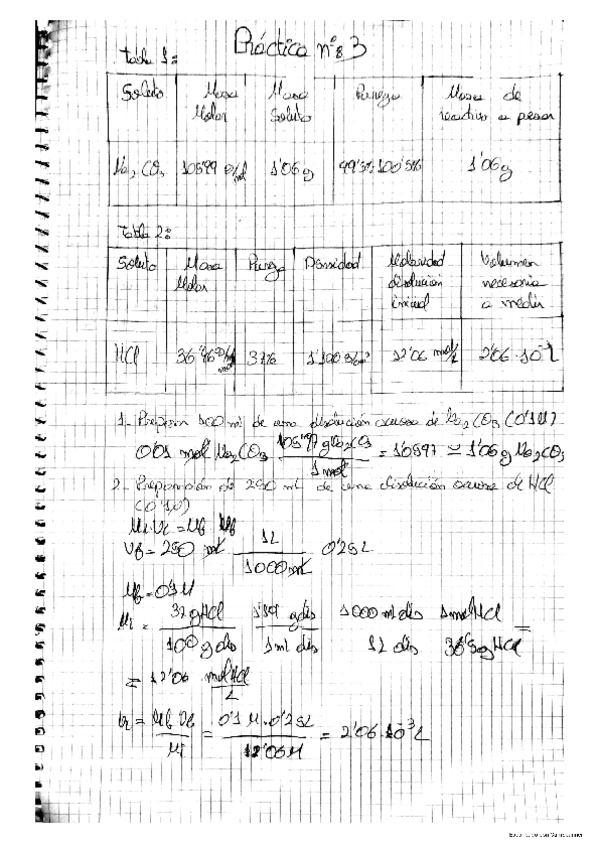 Práctica nº 3
Tabla 1:
Soluto Masa Molar Masa Soluto Pureza Masa de reactivo a pesar
Na2 CO3 105'99 g/mol 1'06 g 99'5%-100'5% 1'06 g
Tabla 2:
Soluto Masa Molar Pureza Densidad Molaridad disolución inicial Volumen necesario a medir
HCl 36'46 g/mol 37% 12'06 mol/L
1- Preparar 100 ml de una disolución acuosa de Na2 CO3 (0'1M)
0'01 mol Na2CO3 105'97 g Na2CO3 / 1 mol = 1'0597 ≃ 1'06 g Na2 CO3
2- Preparación de 250 mL de una disolución acuosa de HCl
(0'1M)
Vf = 250 ml 1L / 1000 ml 0'25 L
Mf = 0'1 M
37 g HCl / 100 g dis g dis / 1 ml dis 1000 ml dis / 1L dis 1 mol HCl / g HCl =
= 12'06 mol HCl / L
= Mf Vf / Mi = 0'1 M · 0'25L / 12'06M = 2'06 · 10⁻³ L